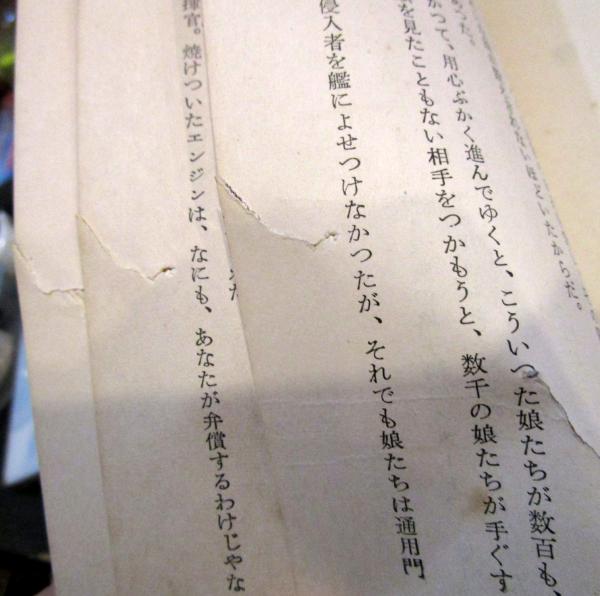 ほどいたからだ。
かつて、用心ぶかく進んでゆくと、こういった娘たちが数百も、
を見たこともない相手をつかもうと、数千の娘たちが手ぐす
侵入者を艦によせつけなかったが、それでも娘たちは通用門
揮官。焼けついたエンジンは、なにも、あなたが弁償するわけじゃな